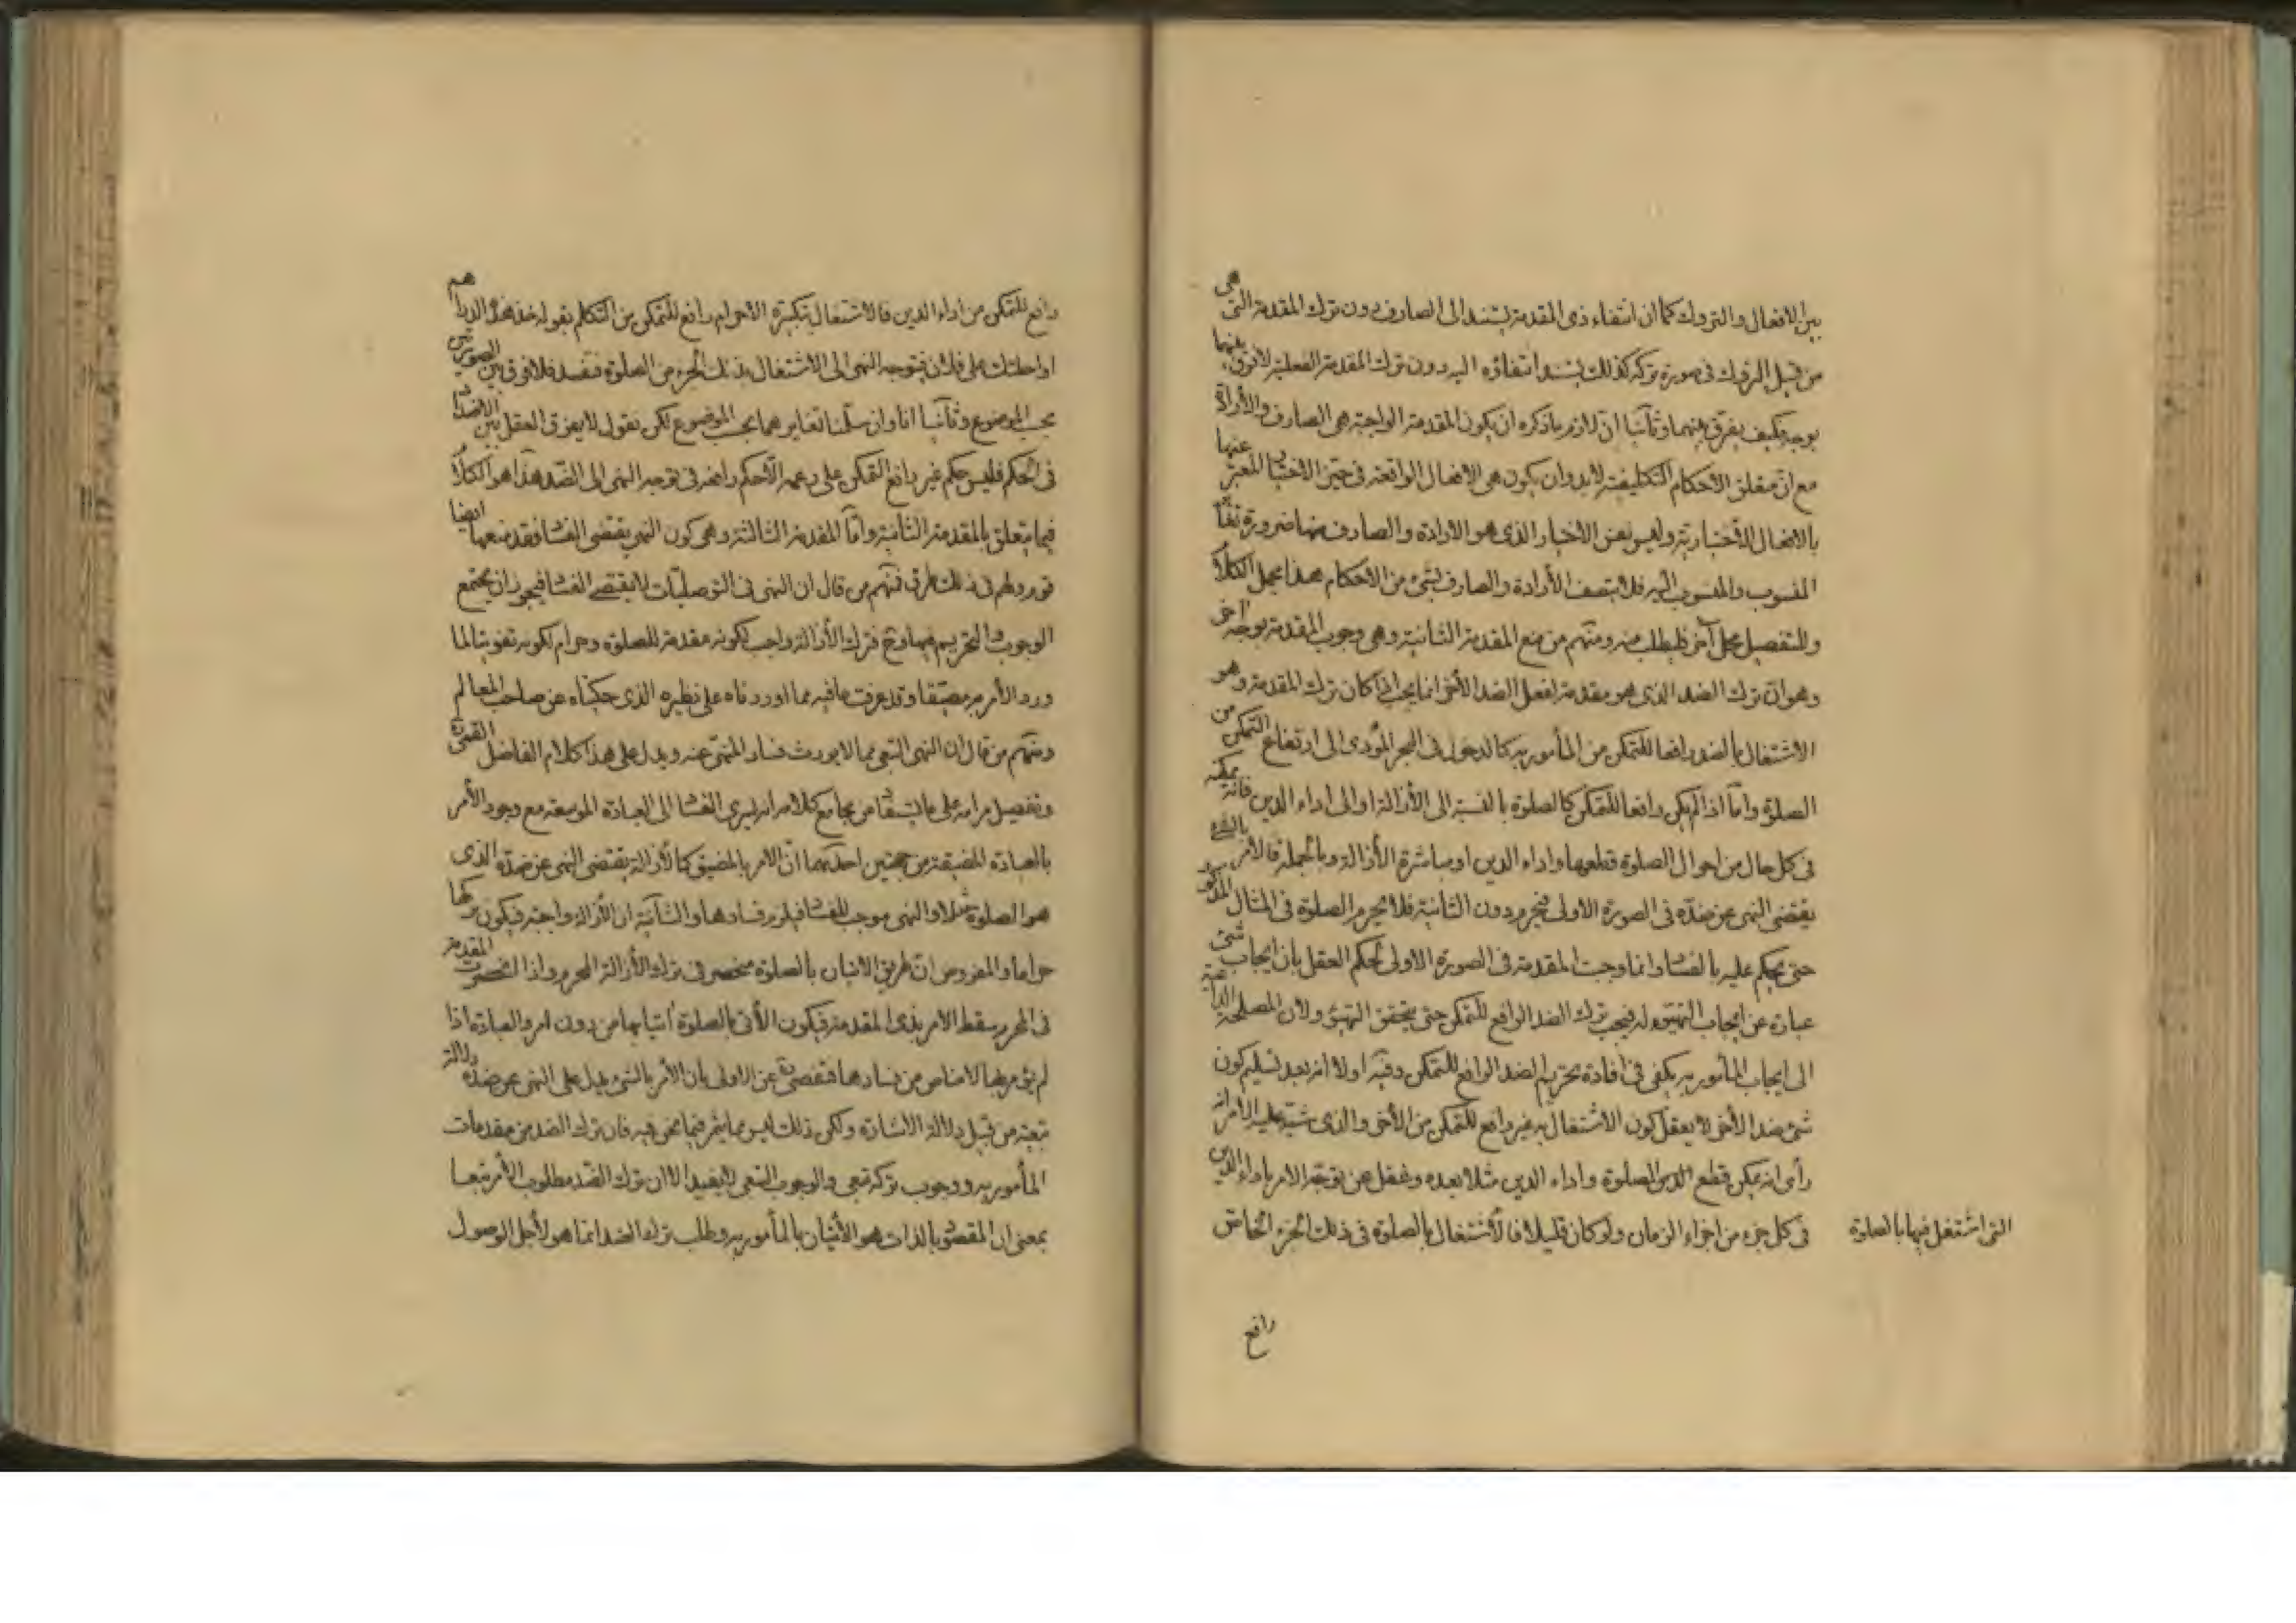 بين الافعال والتروك كما ان انتفاء ذى المقدمة يستند الى الصارف دون ترك المقدمة التى هى
من قبيل التروك فى صورة تركه كذلك يستند انتفاؤه اليه دون ترك المقدمة الفعلية لا فرق بينهما
بوجه فكيف يفرق بينهما وثانيا ان لازم ما ذكره ان يكون المقدمة الواجبة هى الصارف والارادة
مع ان متعلق الاحكام التكليفية لابد وان يكون هى الافعال الواقعة فى حيز الاختيار المعبر عنها
بالافعال الاختيارية وليس نفس الاختيار الذى هو الارادة والصارف منها ضرورة
المنسوب والمنسوب اليه فلا يتصف الأرادة والصارف بشئ من الاحكام هذا مجمل الكلام
وللتفصيل محل آخر فليطلب منه ومنهم من منع المقدمة الثانية وهى وجوب المقدمة بوجه آخر
وهو ان ترك الضد الذى هو مقدمة لفعل الضد الأخر انما يجب اذا كان ترك المقدمة وهو
الاشتغال بالضد رافعا للتمكن من المأمور به كالدخول فى البحر المؤدى الى ارتفاع التمكن من
الصلوة واما اذا لم يكن رافعا للتمكن كالصلوة بالنسبة الى الأزالة او الى اداء الدين فانه يمكنه
فى كل حال من احوال الصلوة قطعها واداء الدين او مباشرة الأزالة وبالجملة فالامر بالشئ
يقتضى النهى عن ضده فى الصورة الاولى فيحرم دون الثانية فلا يحرم الصلوة فى المثال المذكور
حتى يحكم عليه بالفساد وانما وجبت المقدمة فى الصورة الاولى لحكم العقل بان ايجاب شئ
عبارة عن ايجاب التهيؤ له فيجب ترك الضد الرافع للتمكن حتى يتحقق التهيؤ ولان المصلحة الداعية
الى ايجاب المأمور به يكفى فى افادة تحريم الضد الرافع للتمكن وفيه اولا انه بعد تسليم كون
شئ ضد الأخر لا يعقل كون الاشتغال به غير رافع للتمكن من الأخر والذى شبّه عليه الامر انه
رأى انه يمكن قطع الصلوة واداء الدين مثلا بعده وغفل عن توجه الامر باداء الدين
فى كل جزء من اجزاء الزمان ولو كان قليلا فالأشتغال بالصلوة فى ذلك الجزء الخاص
التى اشتغل فيها بالصلوة
رافع
رافع للتمكن من اداء الدين فالاشتغال بتكبيرة الاحرام رافع للتمكن من التكلم بقوله خذ هذه الدراهم
او احلتك على فلان فيتوجه النهى الى الاشتغال بذلك الجزء من الصلوة فتفسد فلا فرق بين الصورتين
بحسب الموضوع وثانيا انا وان سلمنا تغايرهما بحسب الموضوع لكن نقول لا يفرق العقل بين الاضداد
فى الحكم فليس حكم غير رافع التمكن على زعمه الا حكم رافعه فى توجه النهى الى الضد هذا هو الكلام
فيما يتعلق بالمقدمة الثانية واما المقدمة الثالثة وهى كون النهى يقتضى الفساد فقد منعها ايضا
قوم ولهم فى ذلك طرق فمنهم من قال ان النهى فى التوصليات لا يقتضى الفساد فيجوز ان يجتمع
الوجوب والتحريم فيها وح فترك الأزالة واجب لكونه مقدمة للصلوة وحرام لكونه تفويتا لما
ورد الأمر به مضيقا وقد عرفت ما فيه مما اوردناه على نظيره الذى حكيناه عن صاحب المعالم
ومنهم من قال ان النهى التبعى مما لا يورث فساد المنهى عنه ويدل على هذا كلام الفاضل القمى
وتفصيل مرامه على ما يستفاد من مجامع كلامه انه يسرى الفساد الى العبادة الموسعة مع وجود الأمر
بالعبادة المضيقة من جهتين احديهما ان الامر بالمضيق كالأزالة يقتضى النهى عن ضده الذى
هو الصلوة مثلا والنهى موجب للفساد فيلزم فسادها والثانية ان الأزالة واجبة فيكون تركها
حراما والمفروض ان طريق الاتيان بالصلوة منحصر فى ترك الأزالة المحرم واذا انحصرت المقدمة
فى المحرم سقط الامر بذى المقدمة فيكون الأتى بالصلوة آتيا بها من دون امر والعبادة اذا
لم يؤمر بها لا مناص من فسادها فتفصى عن الاولى بان الأمر بالشئ يدل على النهى عن ضده دلالة
تبعية من قبيل دلالة الاشارة ولكن ذلك ليس مما يثمر فيما نحن فيه فان ترك الضد من مقدمات
المأمور به ووجوب تركه تبعى والوجوب التبعى لا يفيد الا ان ترك الضد مطلوب الأمر تبعا
بمعنى ان المقصود بالذات هو الأتيان بالمأمور به وطلب ترك الضد انما هو لأجل الوصول